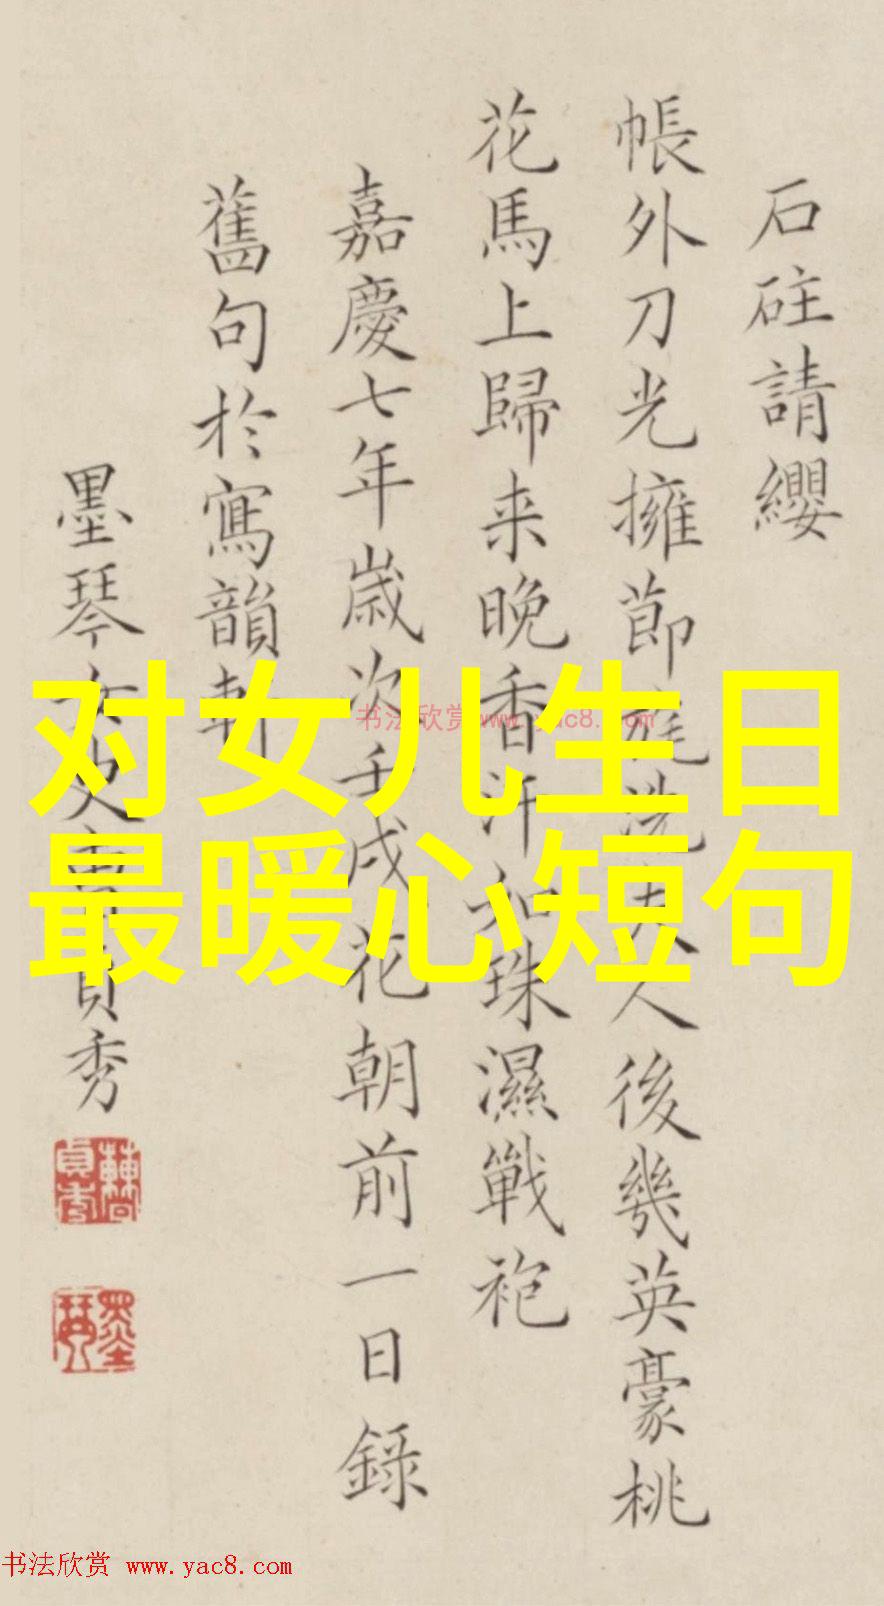 石砫請纓
帳外刀光擁節旄洗夫人後幾英豪桃
花馬上歸来晚香汗和珠濕戰袍
嘉慶七年歲次壬戌花朝前一日錄
舊句於寫韻軒
墨琴女史曹貞秀
对女儿生日
最暖心短句
书法欣赏 www.yac8.com
书法欣赏 www.yac8.com